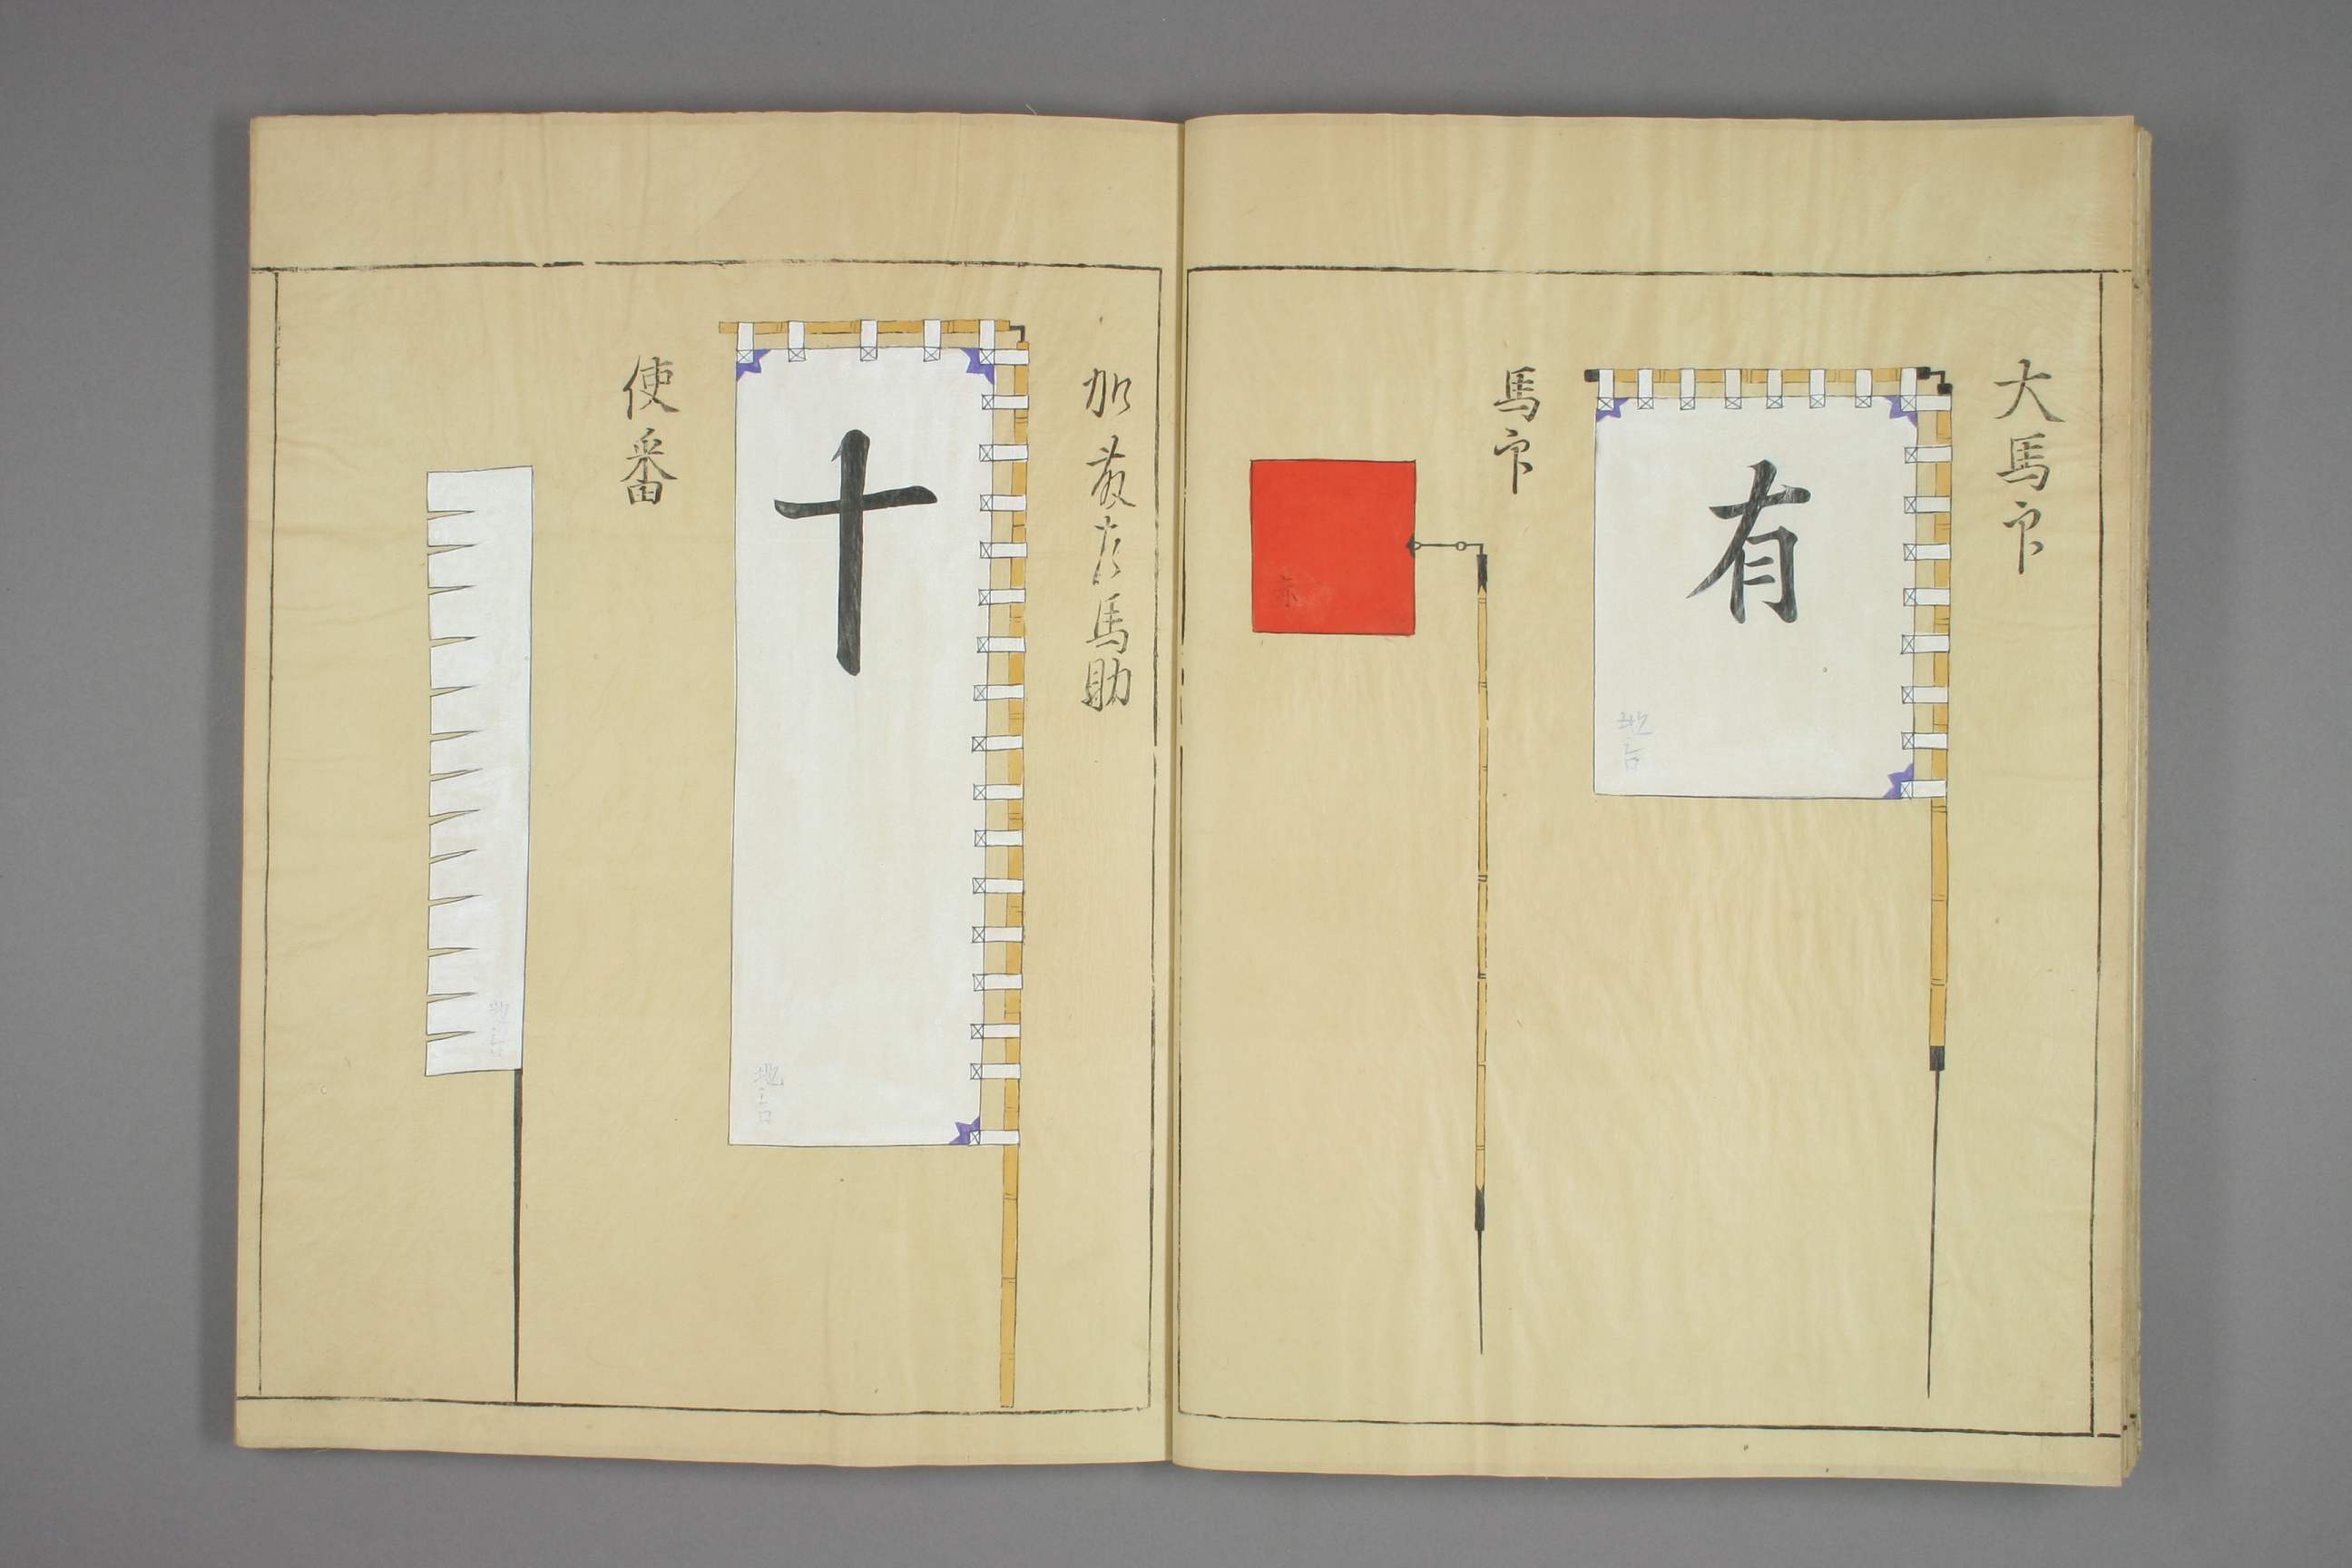 大馬印
有
地白
馬印
赤
加藤左馬助
十
地白
使番
地白